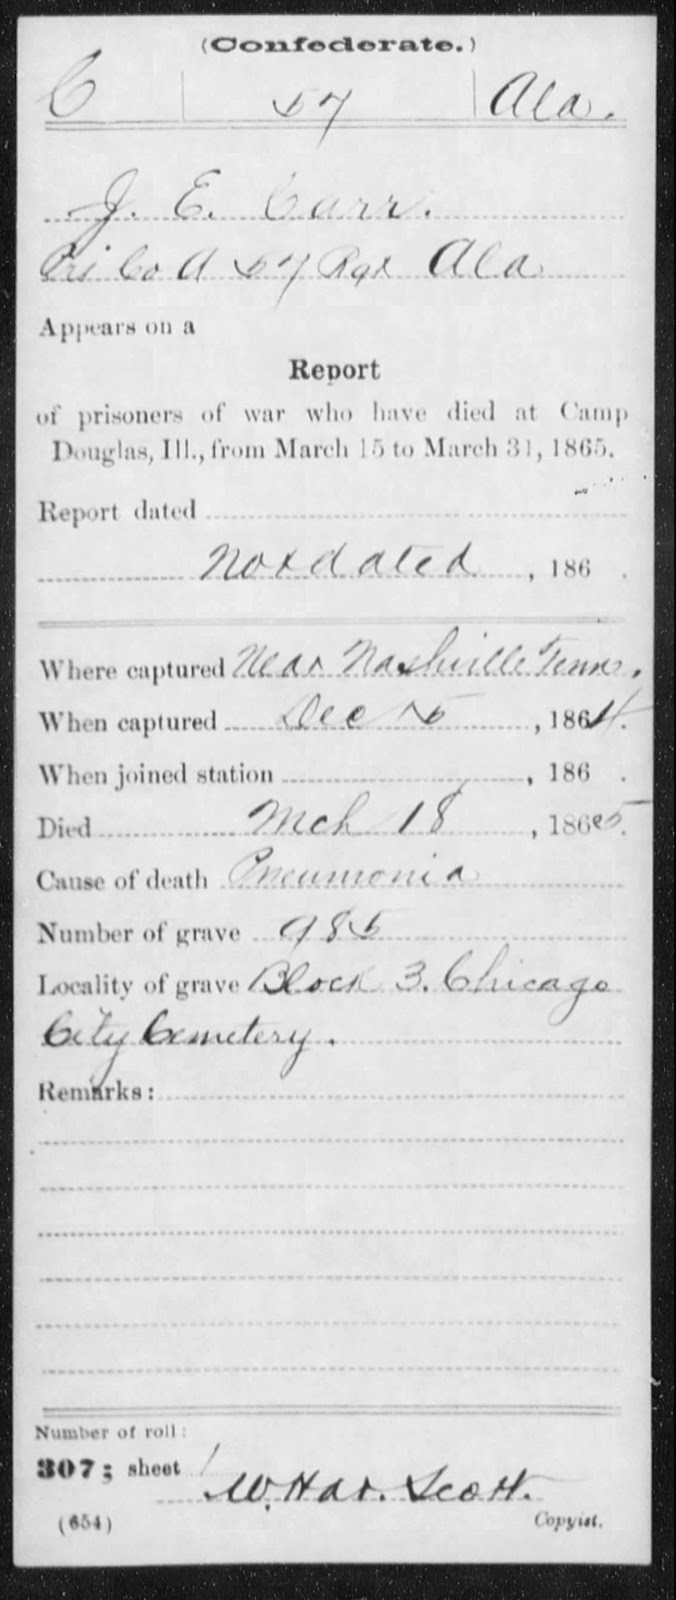 (Confederate.)
C 57 Ala.
J. E. Carr.
Pri Co A 57 Rgt Ala
Appears on a
Report
of prisoners of war who have died at Camp
Douglas, Ill., from March 15 to March 31, 1865.
Report dated
Not dated, 186 .
Where captured Near Nashville Tenn.
When captured Dec 15, 1864.
When joined station , 186 .
Died Mch 18, 1865.
Cause of death Pneumonia
Number of grave 985
Locality of grave Block 3. Chicago
City Cemetery.
Remarks:
Number of roll:
307; sheet
W. Har. Scott.
(654) Copyist.